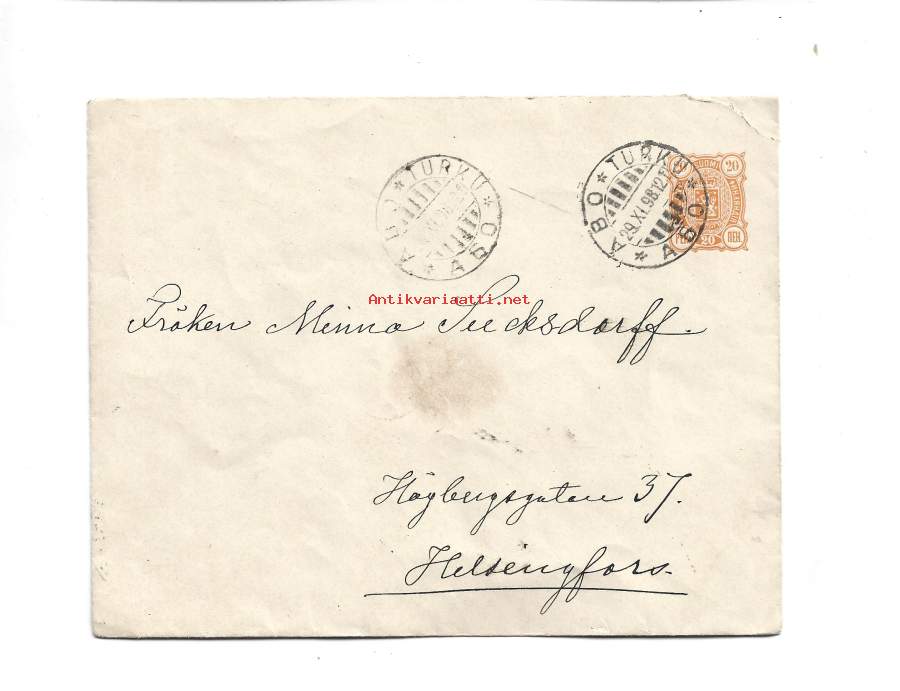 TURKU * ÅBO * ÅBO *
TURKU * ÅBO * ÅBO *
29.XI.98.12
SUOMI
20
20
PEN.
Antikvariaatti.net
Fröken Minna Sucksdorff.
Högbergsgatan 37.
Helsingfors.